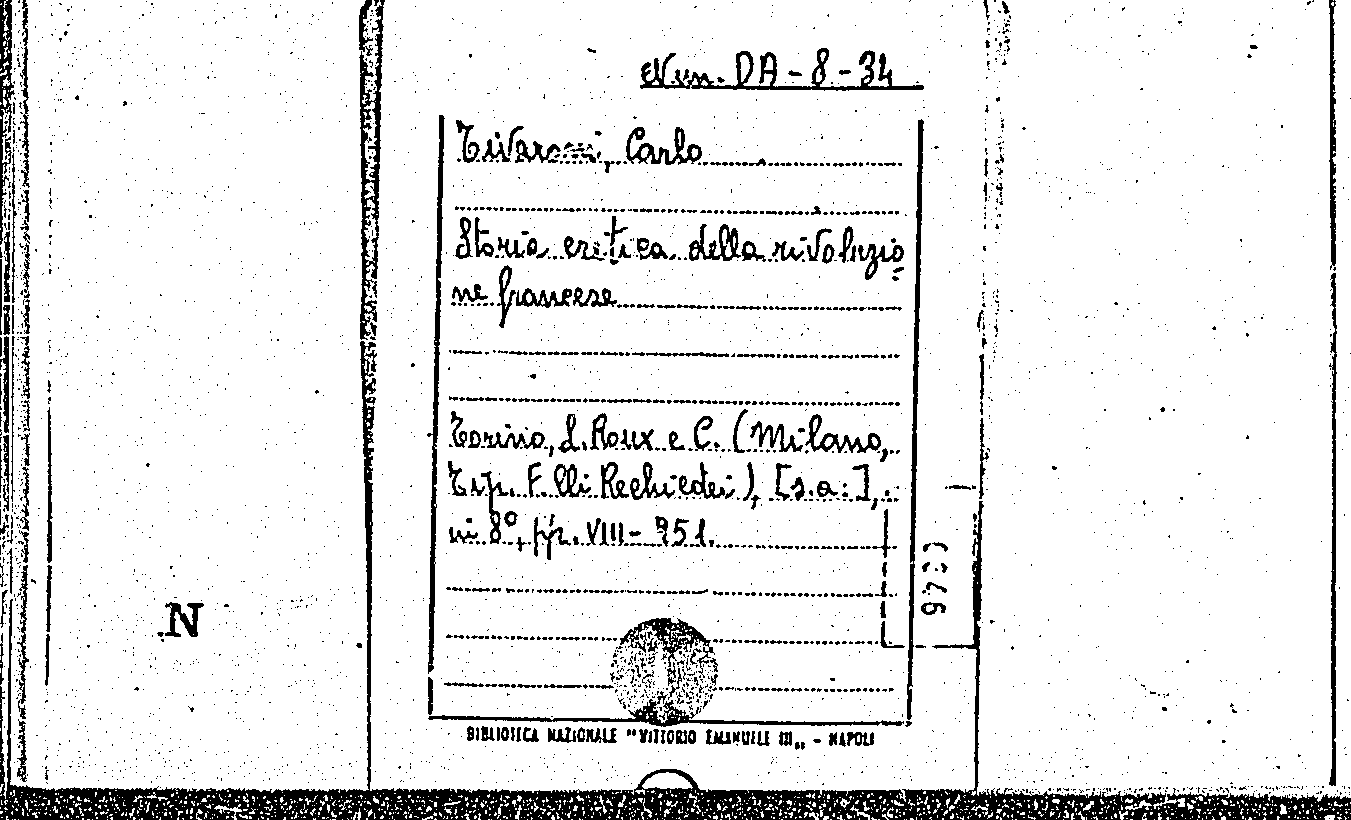 Nun. DA - 8 - 34
Tivaroni, Carlo
Storia critica della rivoluzio
ne francese
Torino, L. Roux e C. (Milano,
Tip. F.lli Rechiedei), [s.a.],
in 8°, pp. VIII - 951.
N
BIBLIOTECA NAZIONALE "VITTORIO EMANUELE III„ - NAPOLI